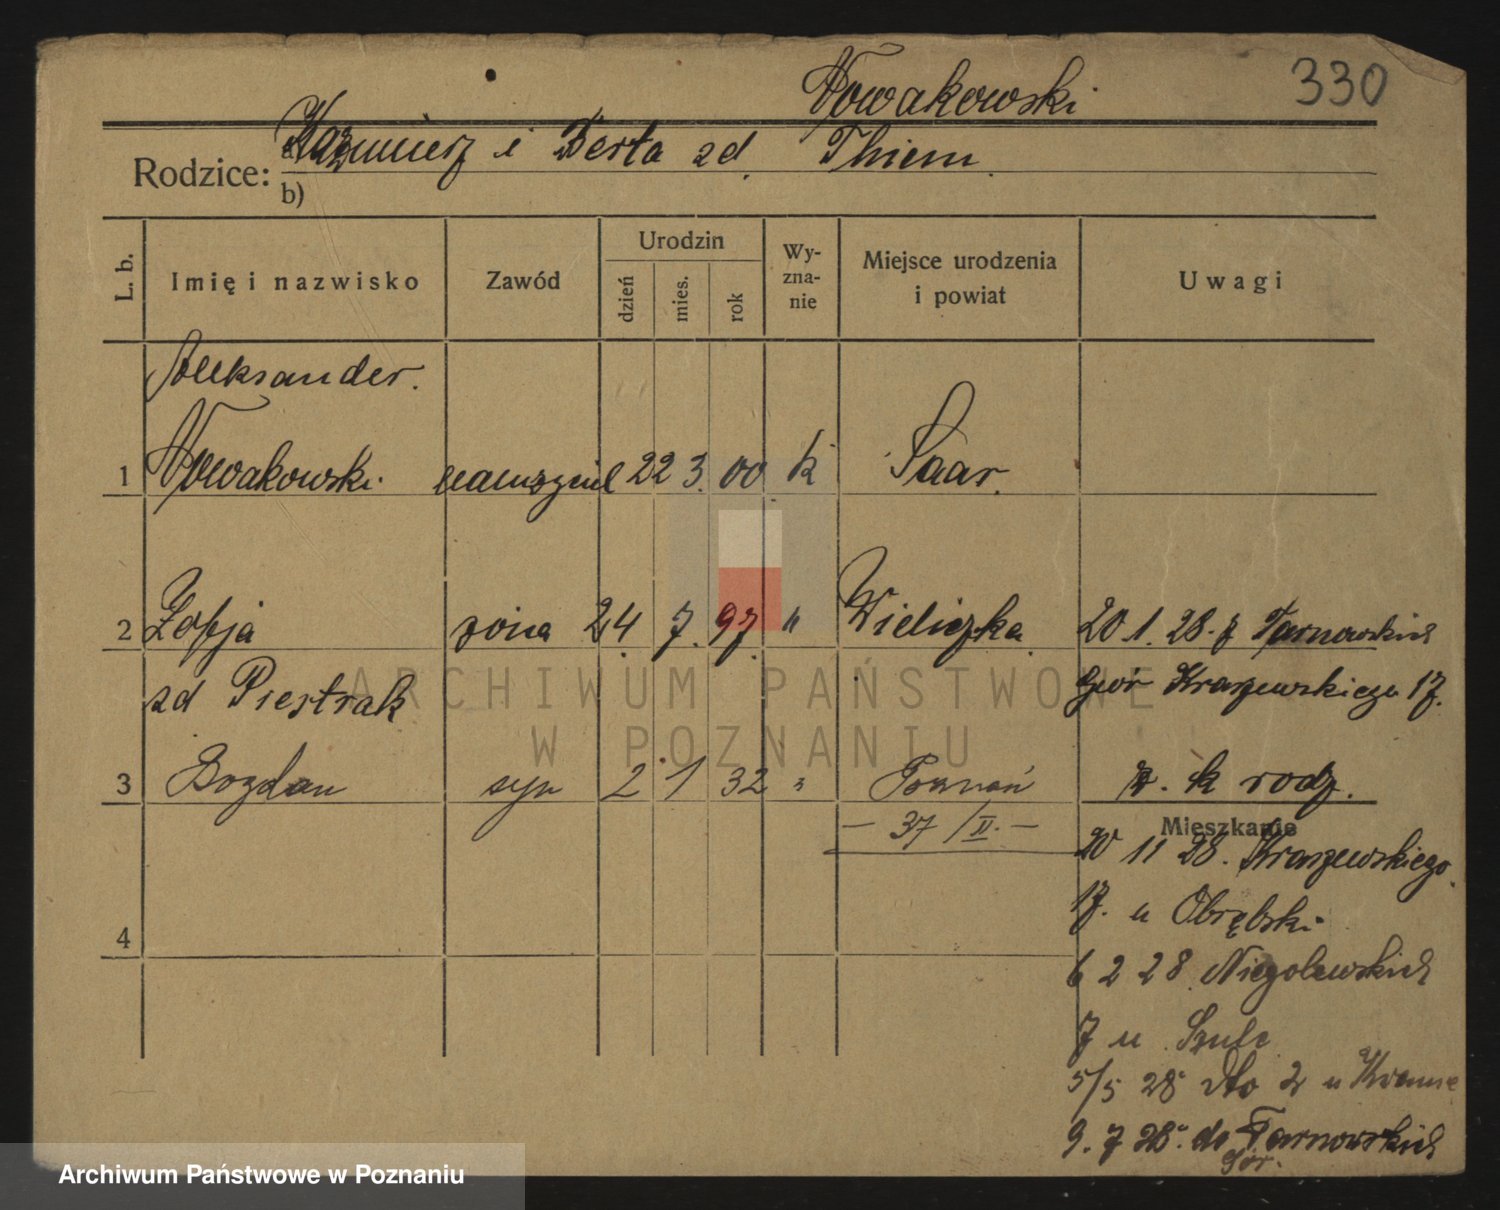 330
Nowakowski
Rodzice: a) Kazimierz i Berta zd. Thiem.
b)
L. b. Imię i nazwisko Zawód Urodzin dzień mies. rok Wy-zna-nie Miejsce urodzenia i powiat Uwagi
Aleksander.
1 Nowakowski. 22 3. 00 k Saar.
2 Zofja żona 24. 7. 97. " Wieliczka. 20. 1. 28. z Tarnowskich
zd Piestrak Gór Kraszewskiego 17.
3 Bogdan syn 2 1 32 " Poznań k rodz.
— 37/II. —
Mieszkanie
20 11 28. Kraszewskiego.
17. u Obrębski
4
6 2 28 Niegolewskich
7 u Szulc
5/5 28 dto 2 u Krause
9. 7 28. do Tarnowskich
Gór.
ARCHIWUM PAŃSTWOWE
W POZNANIU
Archiwum Państwowe w Poznaniu